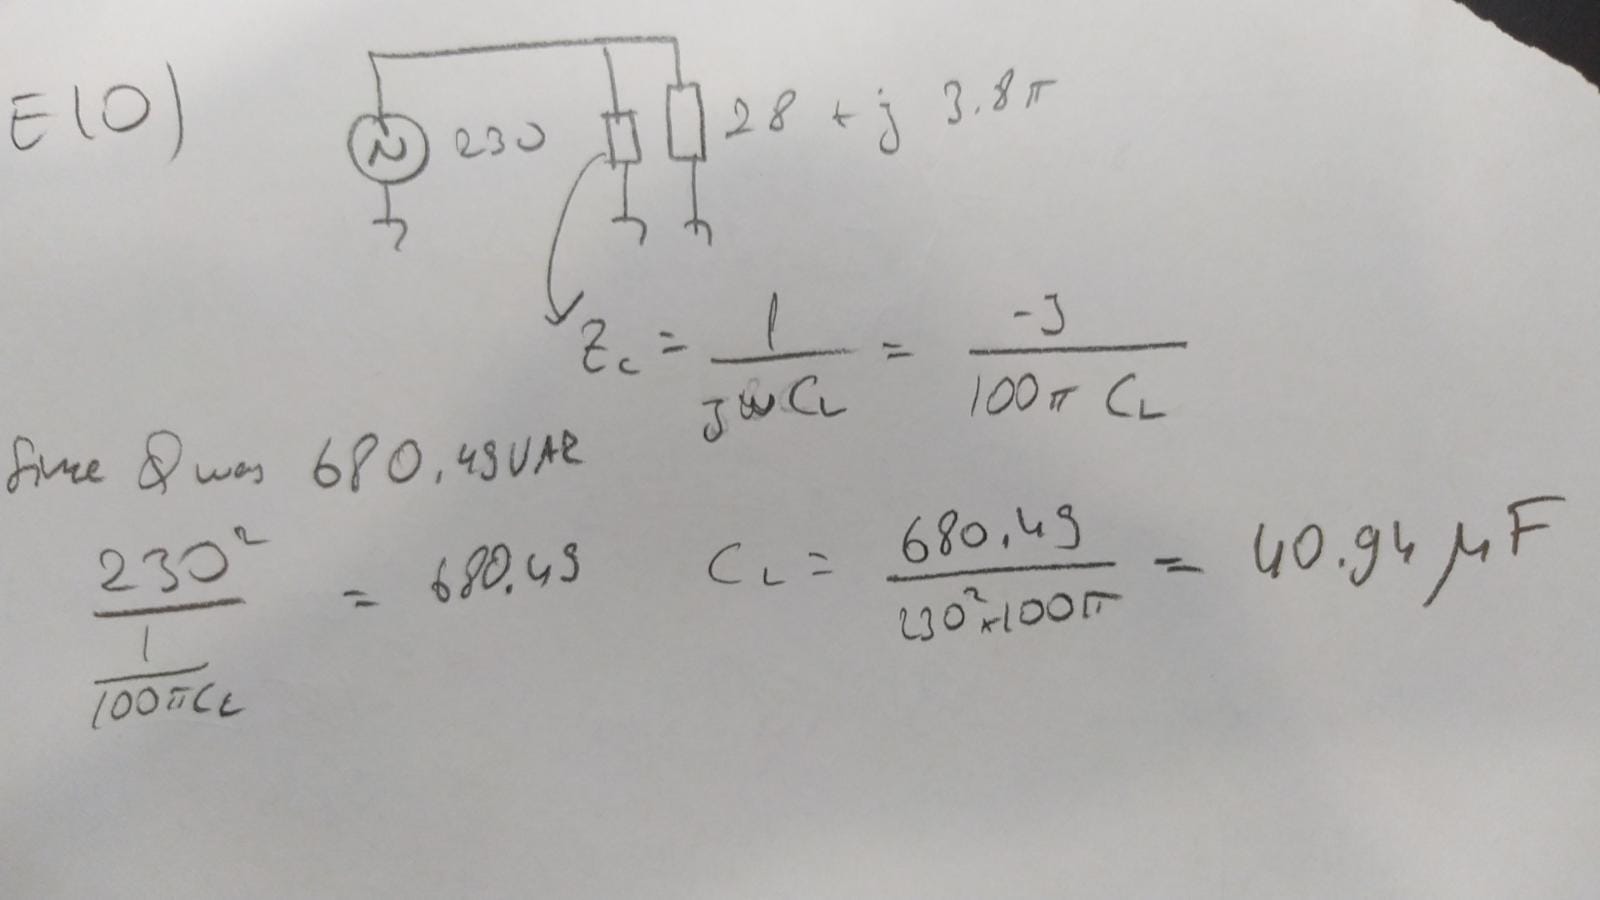 E(O)
230
28 + j 3.8π
Zc = 1 / jωCL = -J / 100π CL
Since Q was 680.49VAR
230² / (1 / 100πCL) = 680.49
CL = 680.49 / 230²×100π = 40.94 μF